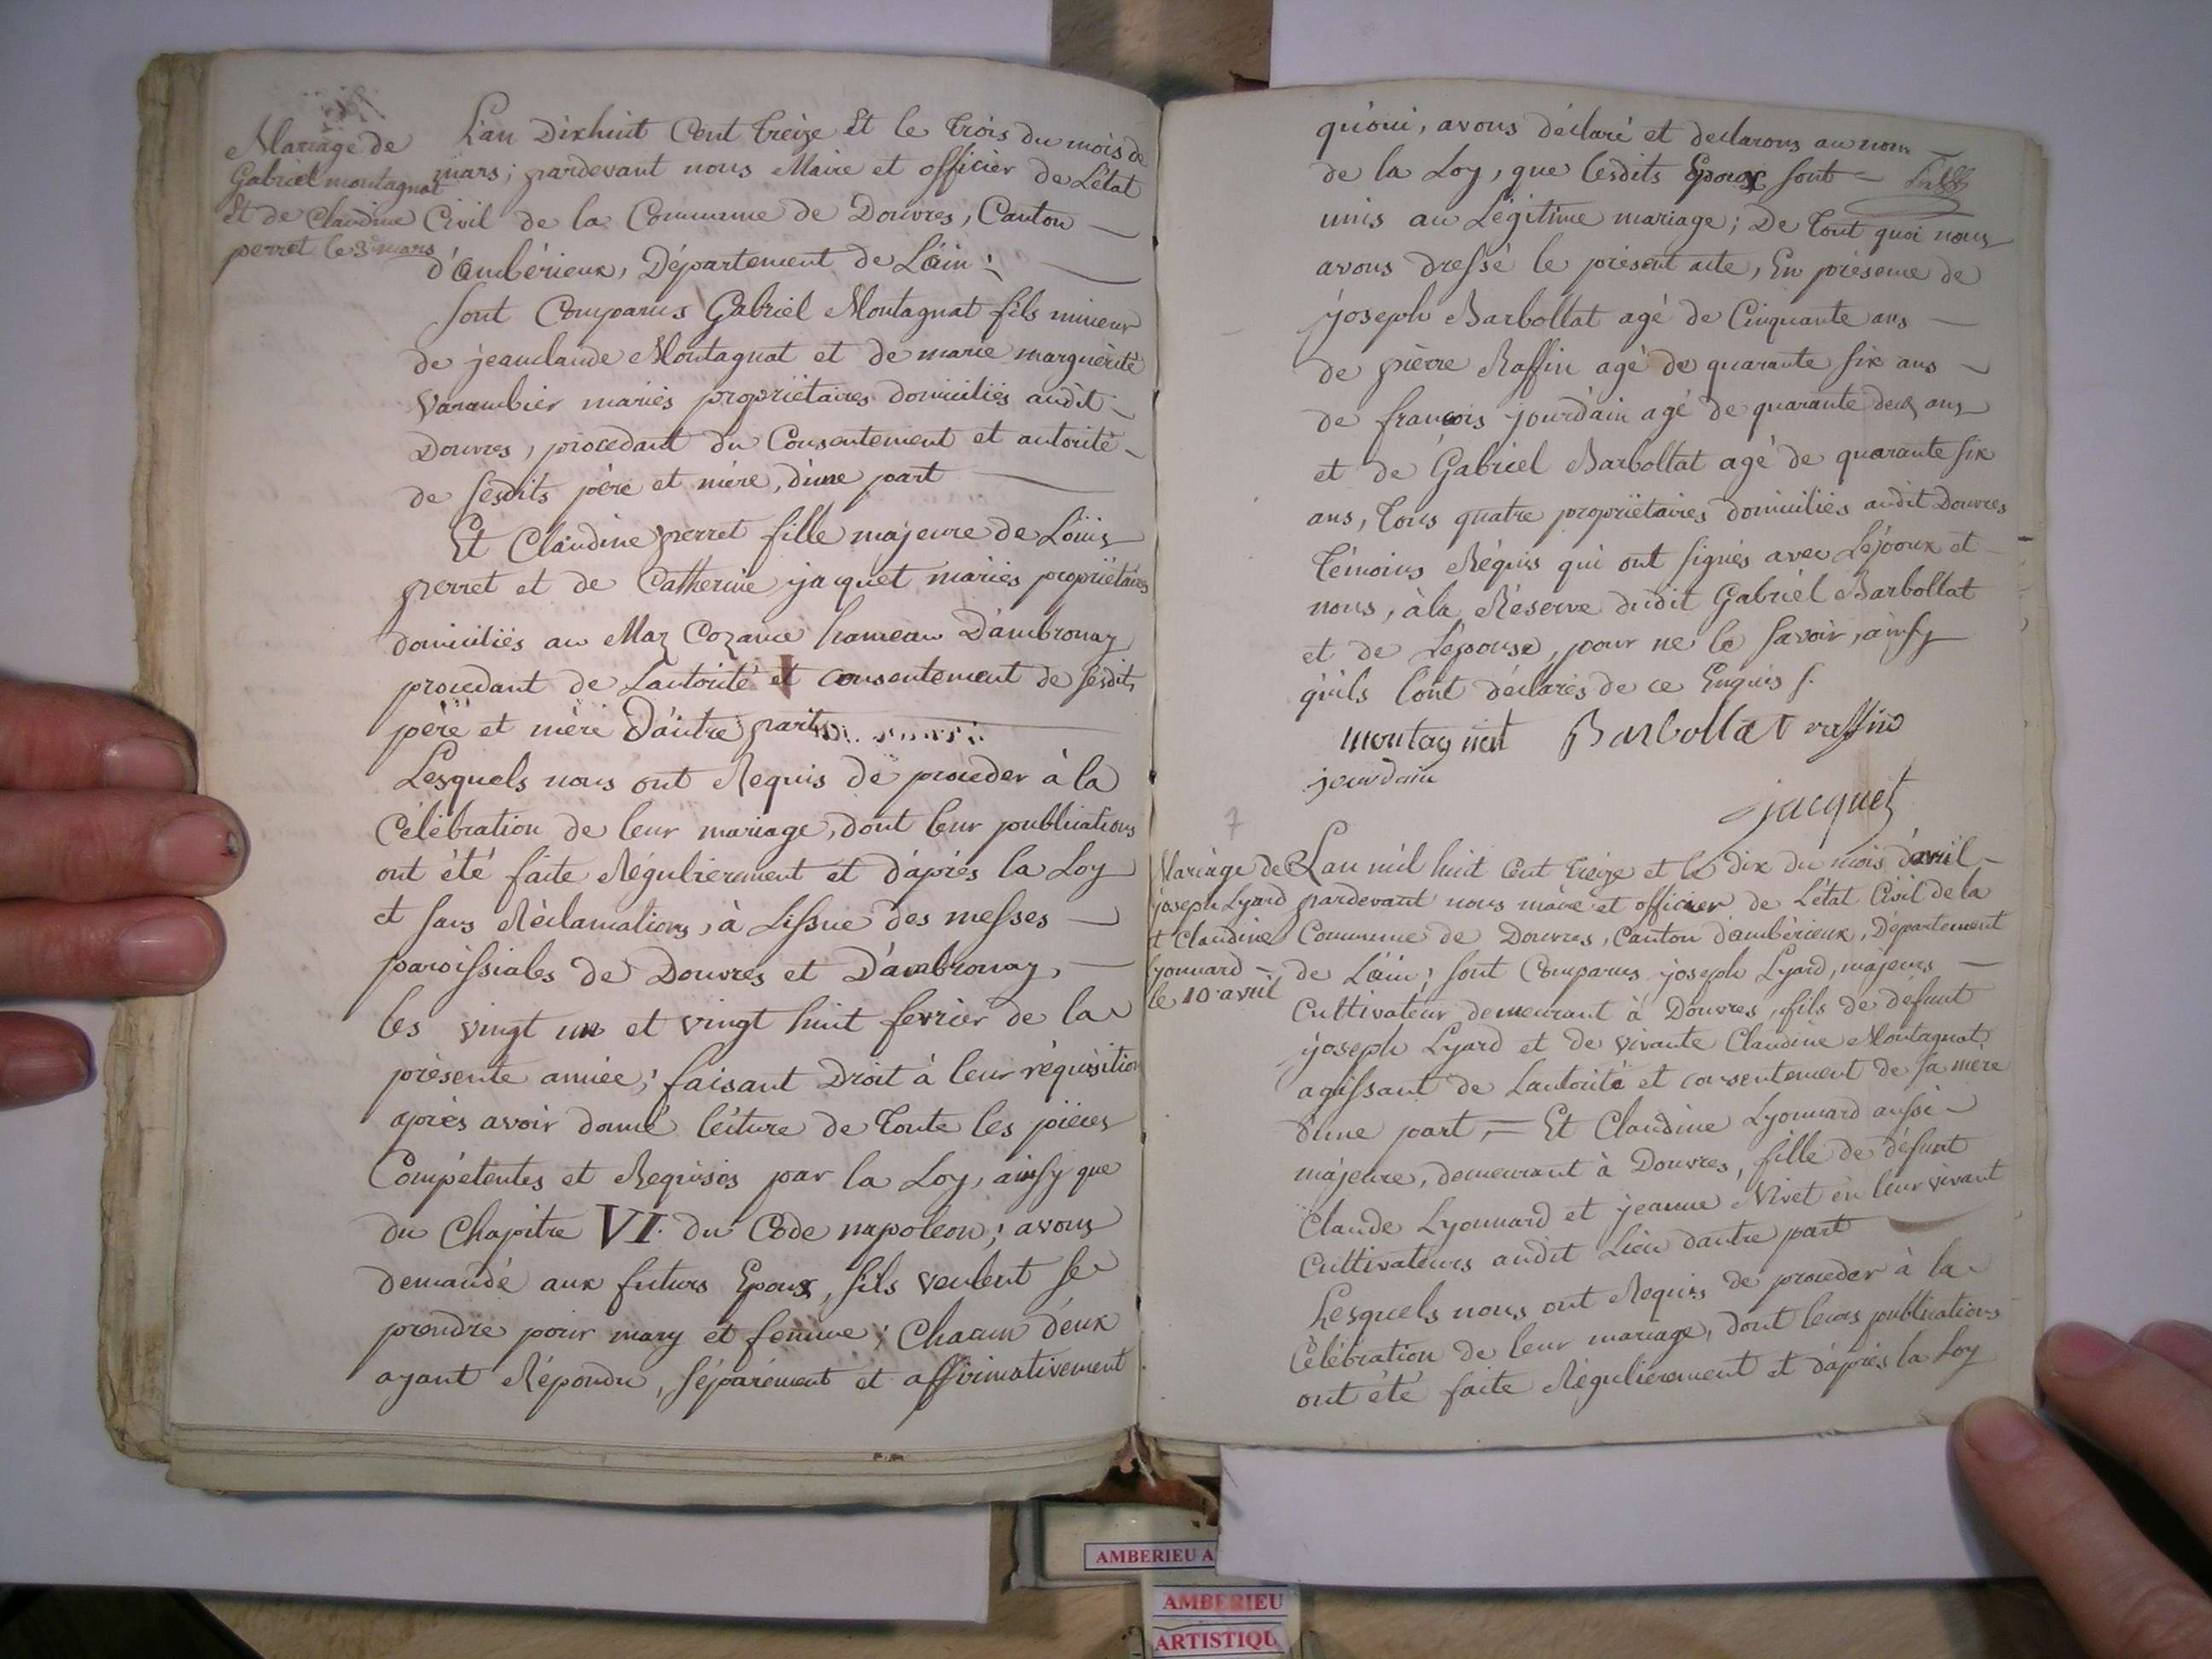 Mariage de
Gabriel montagnat
Et de Claudine
perret le 3 mars
L'an Dixhuit Cent treize Et le trois du mois de
mars; pardevant nous Maire et officier de L'état
Civil de la Commune de Douvres, Canton
d'ambérieux, Département de L'ain;
sont Comparus Gabriel Montagnat fils mineur
de jeanclaude Montagnat et de marie marguérite
Varambier mariés propriétaires domiciliés audit
Douvres, procedant du Consentement et autorité
de sesdits père et mère, d'une part
Et Claudine perret fille majeure de Loüis
perret et de Catherine jacquet mariés propriétaires
domiciliés au Maz Cozance hameau D'ambronay
procedant de Lautorité et consentement de sesdits
père et mère D'autre part
Lesquels nous ont Requis de proceder à la
Célébration de leur mariage, dont leur publications
ont été faite Régulierement et d'après la Loy
et sans Réclamations, à Lissue des messes
paroissiales de Douvres et D'ambronay,
les vingt un et vingt huit fevrier de la
présente année; faisant Droit à leur réquisition
après avoir donné lecture de toute les pièces
Compétentes et Requises par la Loy, ainsy que
du Chapitre VI. du Code napoleon; avons
demandé aux futurs Epoux, s'ils veulent se
prendre pour mary et femme; Chacun d'eux
ayant Répondu, séparément et affirmativement
qu'oui, avons déclaré et declarons au nom
de la Loy, que lesdits Epoux sont
unis au Légitime mariage; De tout quoi nous
avons dressé le présent acte, En présence de
joseph Barbollat agé de Cinquante ans
de pièrre Raffin agé de quarante six ans
de françois jourdain agé de quarante deux ans
et de Gabriel Barbollat agé de quarante six
ans, tous quatre propriétaires domiciliés audit Douvres
témoins Réquis qui ont signés avec Lépoux et
nous, à la Réserve dudit Gabriel Barbollat
et de Lépouse, pour ne le savoir, ainsy
qu'ils l'ont déclarés de ce Enquis /.
montagnat Barbollat raffin
jourdain
jacquet
7
Mariage de
joseph Lyard
et Claudine
Lyonnard
le 10 avril
L'an mil huit Cent treize et le dix du mois d'avril
pardevant nous maire et officier de L'état Civil de la
Commune de Douvres, Canton d'ambérieux, Département
de L'ain; sont Comparus joseph Lyard, majeurs
Cultivateur demeurant à Douvres, fils de défunt
joseph Lyard et de vivante Claudine Montagnat
agissant de Lautorité et consentement de sa mère
d'une part, = Et Claudine Lyonnard aussi
majeure, demeurant à Douvres, fille de défunt
Claude Lyonnard et jeanne Nivet en leur vivant
Cultivateurs audit Lieu dautre part
Lesquels nous ont Requis de proceder à la
Célébration de leur mariage, dont leurs publications
ont été faite Régulierement et d'après la Loy
AMBERIEU A
AMBERIEU
ARTISTIQU